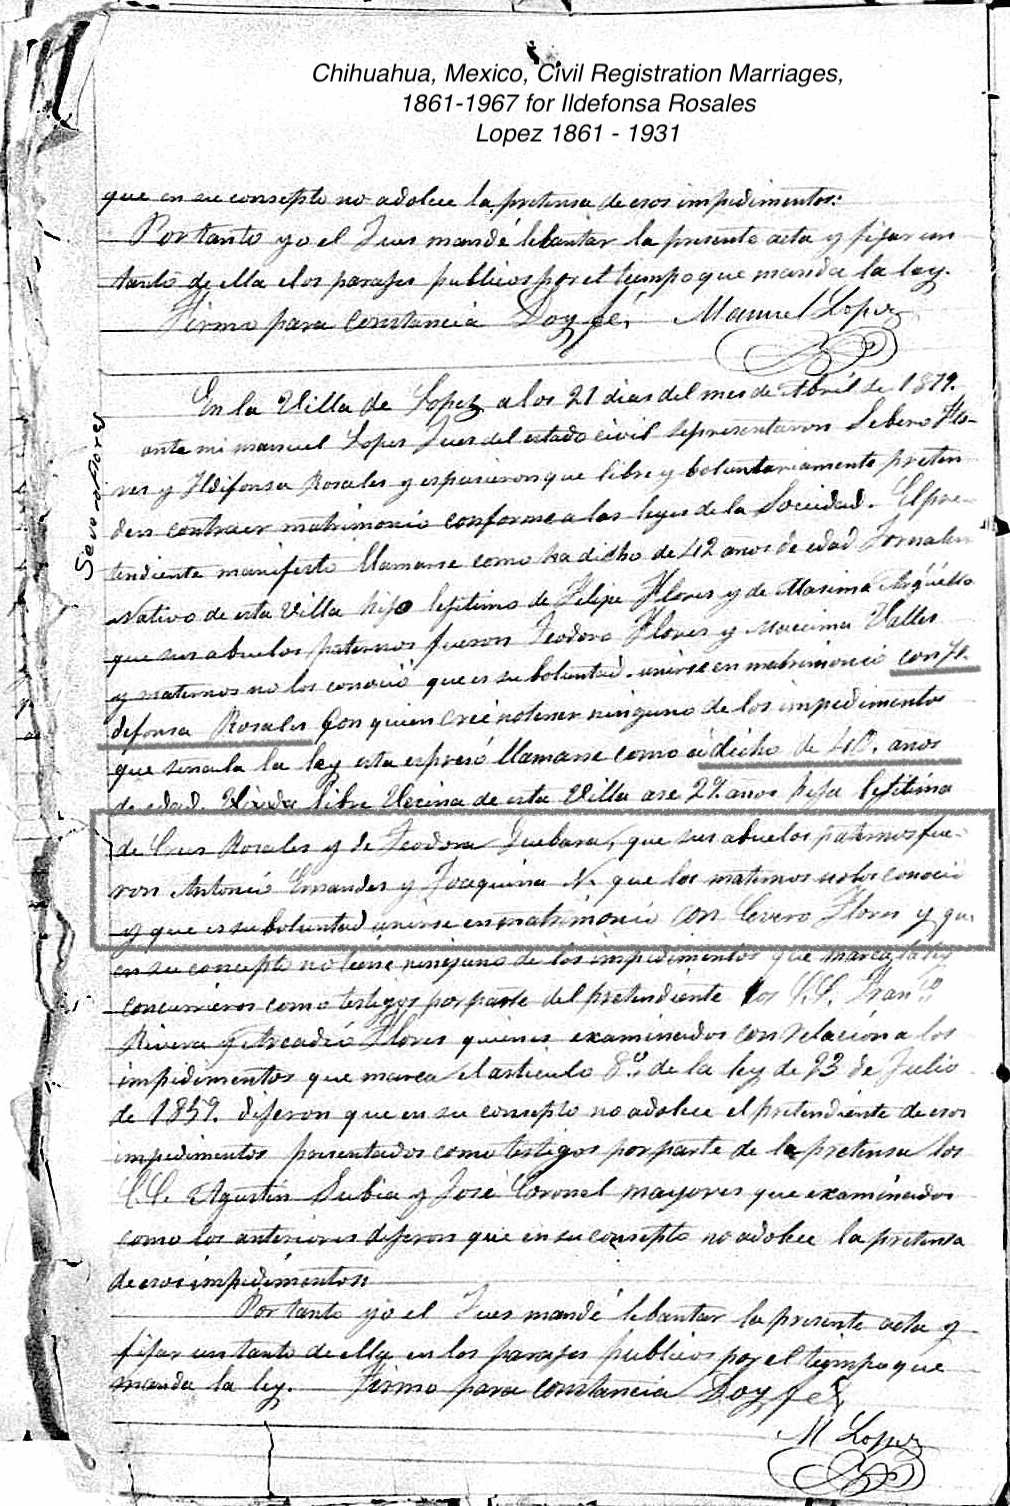 Chihuahua, Mexico, Civil Registration Marriages,
1861-1967 for Ildefonsa Rosales
Lopez 1861 - 1931
que en su consepto no adolece la pretensa de esos impedimentos:
Por tanto yo el Jues mandé lebantar la presente acta y fijar un
tanto de ella e los parajes publicos por el tiempo que manda la ley.
Firmo para constancia Doy fé, Manuel Lopez
En la Villa de Lopez a los 21 dias del mes de Abril de 1879.
ante mi manuel Lopes Jues del estado civil se presentaron Sebero Flo-
res y Ildifonsa Rosales y espusieron que libre y boluntariamente preten
den contraer matrimonio conforme a las leyes de la Sociedad. El pre-
tendiente manifesto llamarse como ha dicho de 42 anos de edad Jornalero
Nativo de esta Villa hijo lejitimo de Felipe Flores y de Maxima Argüello
que sus abuelos paternos fueron Teodoro Flores y Maccima Valles
y maternos no los conoció que es su boluntad unirse en matrimonio con Il
defonsa Rosales Con quien creé no tener ninguno de los impedimentos
que senala la ley esta espresó llamarse como á dicho de 40. anos
de edad. Viuda libre Vecina de esta Villa ase 27 anos hija lejitima
de Crus Rosales y de Teodora Guebara, que sus abuelos paternos fue-
ron Antonio Ernandes y Joaquina N. que los maternos no los conoció
y que es su boluntad unirse en matrimonio con Cevero Flores y que
en su concepto no tiene ninguno de los impedimentos que marca la ley
concurrieron como testigos por parte del pretendiente los C.C. Franco
Rivera y Arcadio Flores quienes examinados con relacion a los
impedimentos que marca el articulo 8o. de la ley de 23 de Julio
de 1859. dijeron que en su consepto no adolece el pretendiente de esos
impedimentos presentados como testigos por parte de la pretensa los
C.C. Agustin Subia y José Coronel mayores que examinados
como los anteriores dijeron que en su consepto no adolece la pretensa
de esos impedimentos
Por tanto yo el Jues mandé lebantar la presente acta y
fijar un tanto de ella en los parajes publicos por el tiempo que
manda la ley. Firmo para constancia Doy fe
M Lopez
Severo Flores